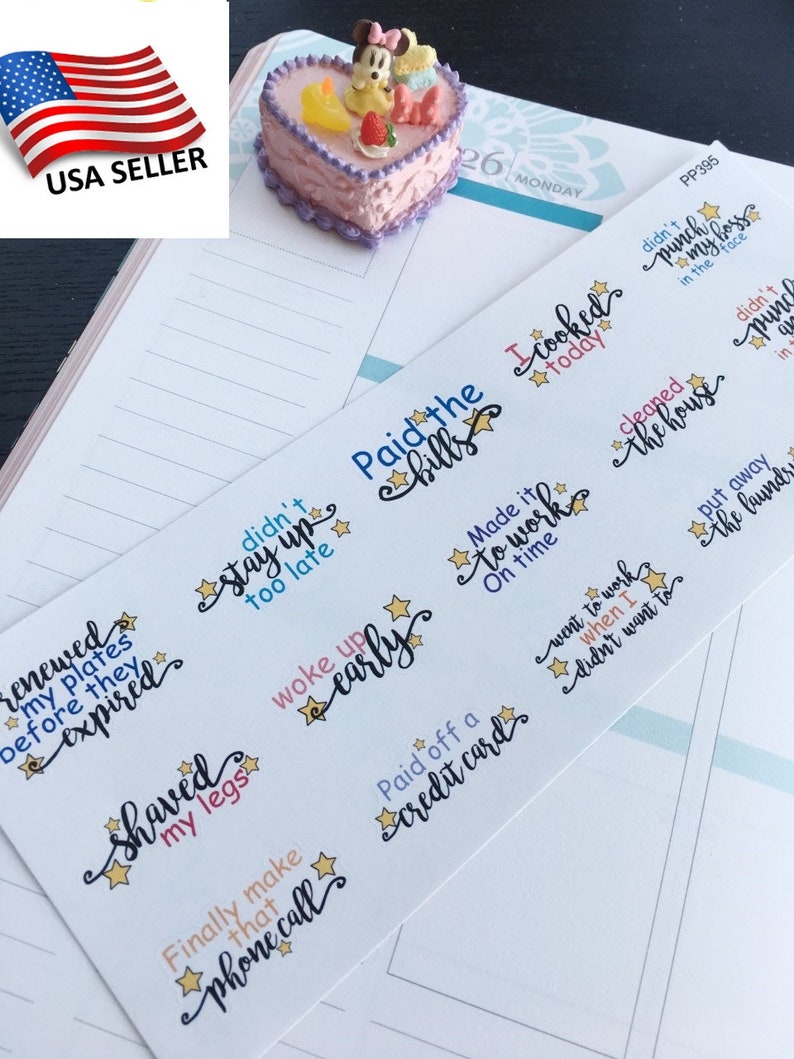 USA SELLER
26
MONDAY
PP395
didn't
punch
my boss
in the face
didn't
punch
in
I
cooked
today
cleaned
the house
put away
the laundry
Paid the
bills
Made it
to work
On time
went to work
when I
didn't want to
didn't
stay up
too late
woke up
early
Paid off a
credit card
renewed
my plates
before they
expired
shaved
my legs
Finally make
that
phone call